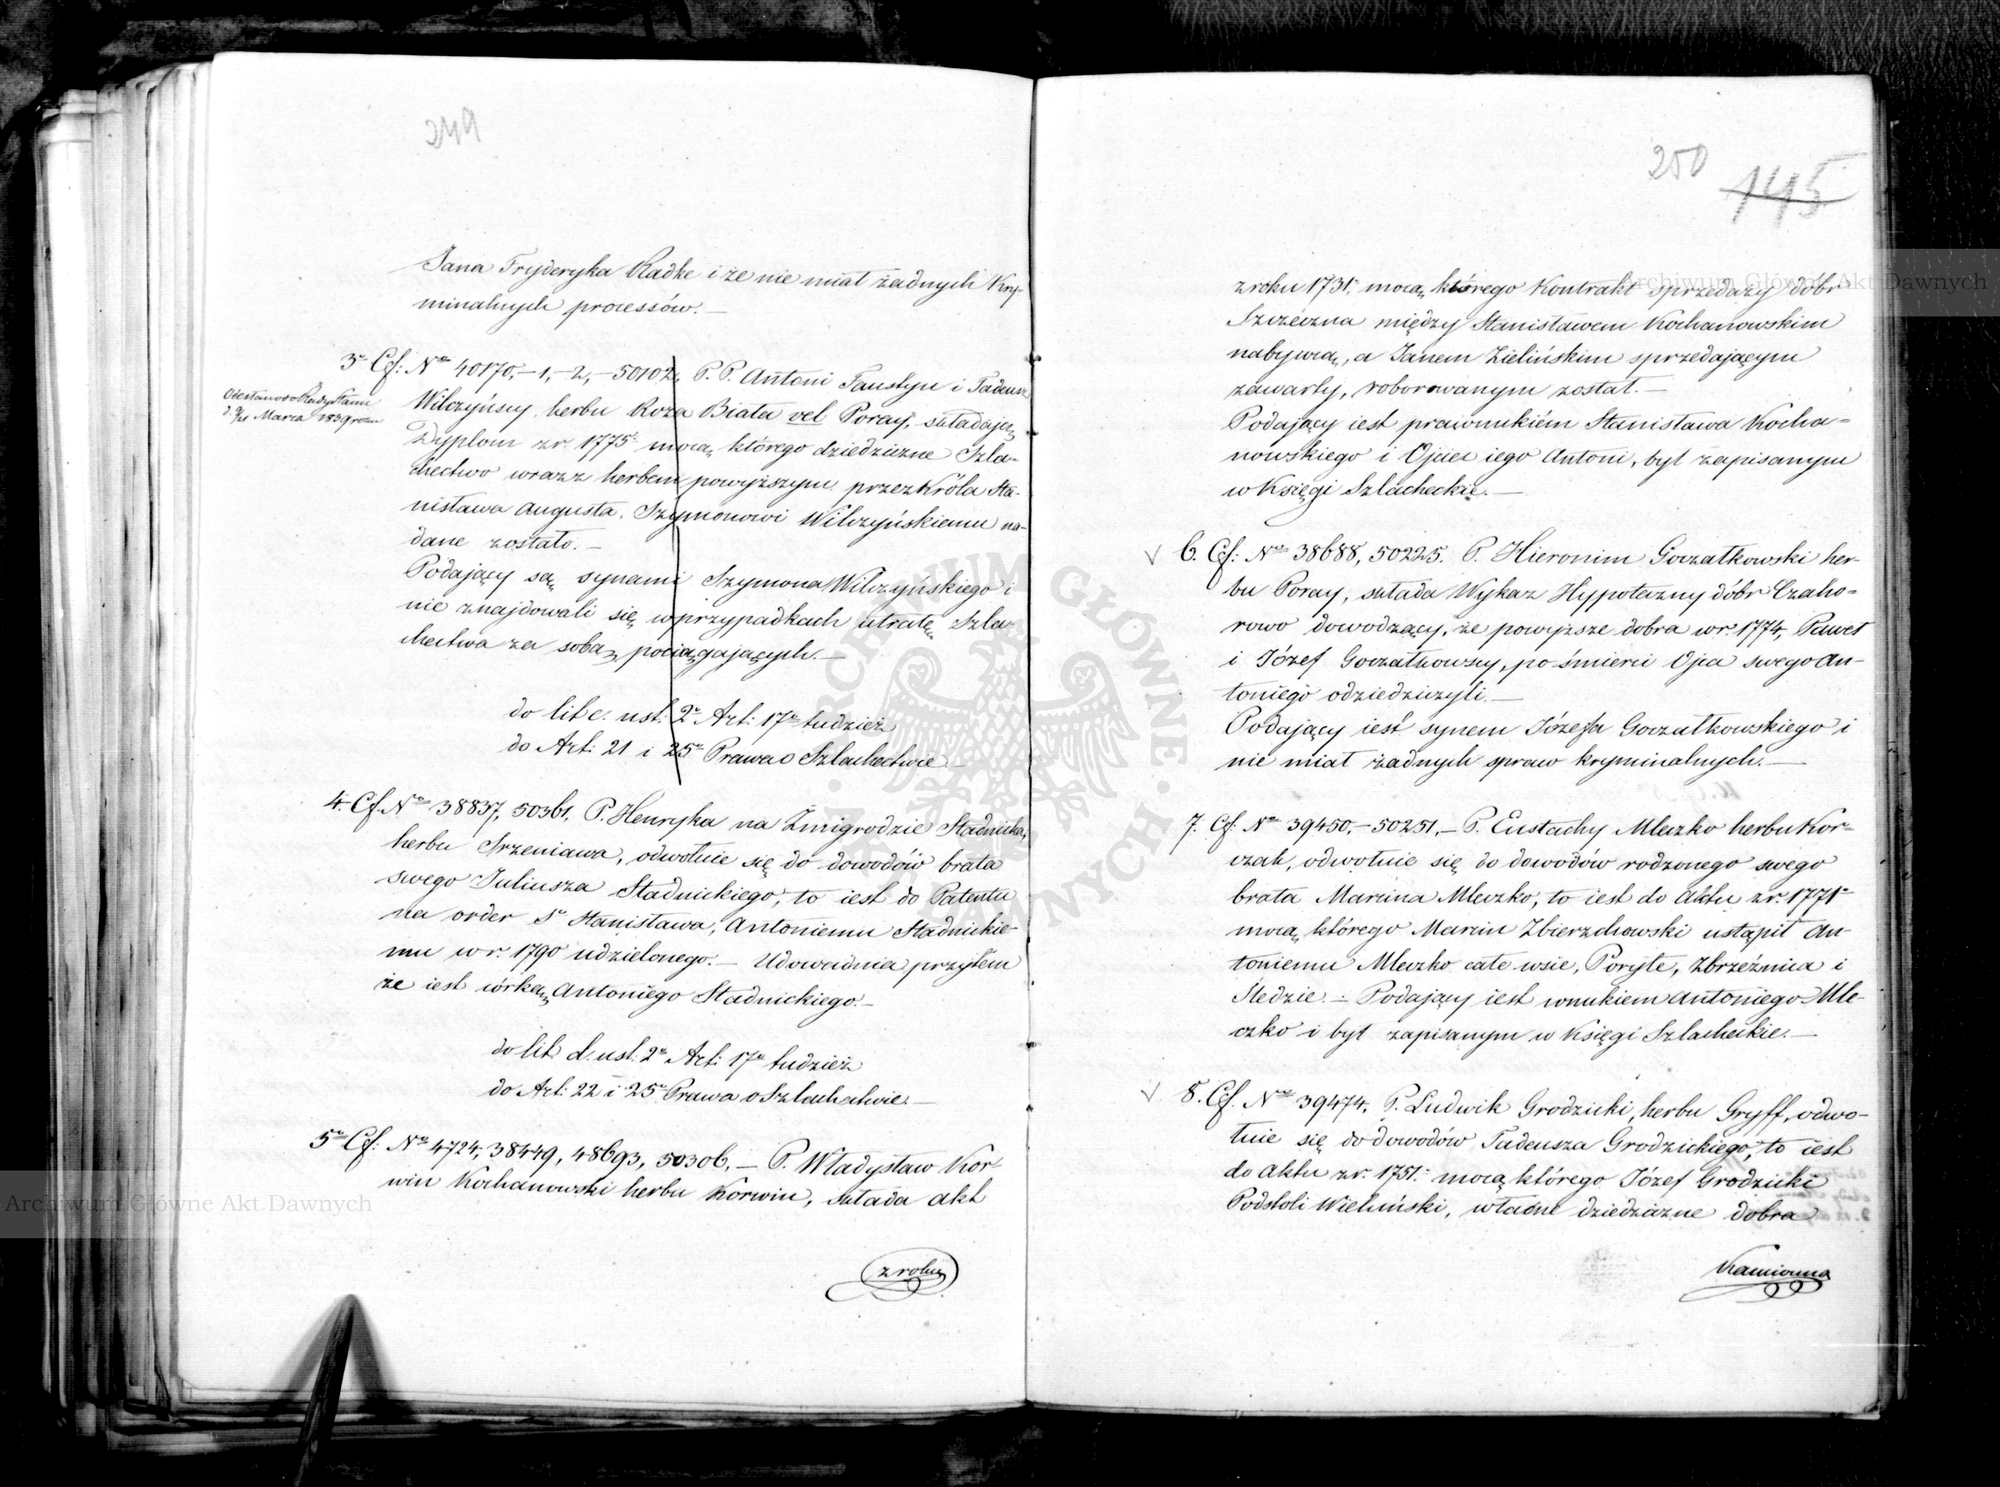 249
Jana Fryderyka Radke i że nie miał żadnych Kry-
minalnych processów. —
3º Cf: Nra 40170,-1,-2,-50102, P. P. Antoni Faustyn i Tadeusz
Odesłano do Rady Stanu
d. 9/21 Marca 1839 roku
Wilczyńscy herbu Roza Biała vel Poray, składają
Dyplom z r. 1775 mocą którego dziedziczne Szla-
chectwo wraz z herbem powyższym przez Króla Sta-
nisława Augusta, Szymonowi Wilczyńskiemu na-
dane zostało. —
Podający są synami Szymona Wilczyńskiego i
nie znajdowali się w przypadkach utratę Szla-
chectwa za sobą pociągających. —
do lit c. ust: 2º Art: 17º tudzież
do Art: 21 i 25º Prawa o Szlachectwie —
4. Cf. Nra 38837, 50361, P. Henryka na Zmigrodzie Stadnicka,
herbu Srzeniawa, odwołuie się do dowodów brata
swego Juliusza Stadnickiego, to iest do Patentu
na order Sº Stanisława, Antoniemu Stadnickie-
mu w r. 1790 udzielonego. — Udowadnia przytem
że iest córką Antoniego Stadnickiego. —
do lit d. ust: 2º Art: 17º tudzież
do Art: 22 i 25º Prawa o Szlachectwie. —
5º Cf: Nra 4724, 38449, 48693, 50306. — P. Władysław Kor-
win Kochanowski herbu Korwin, składa akt
z roku
250
145
z roku 1731, mocą którego Kontrakt sprzedaży dóbr
Szczeczna między Stanisławem Kochanowskim
nabywcą, a Janem Zielińskim sprzedającym
zawarty, roborowanym został. —
Podający iest prawnukiém Stanisława Kocha-
nowskiego i Ojciec iego Antoni, był zapisanym
w Księgi Szlacheckie. —
6. Cf: Nra 38688, 50225. P. Hieronim Gorzałkowski her-
bu Poray, składa Wykaz Hypoteczny dóbr Czaho-
rowo dowodzący, że powyższe dobra w r. 1774, Paweł
i Józef Gorzałkowscy, po śmierci Ojca swego An-
toniego odziedziczyli. —
Podający iest synem Józefa Gorzałkowskiego i
nie miał żadnych spraw kryminalnych. —
7. Cf. Nra 39450, -50251, - P. Eustachy Mleczko herbu Kor-
czak, odwołuie się do dowodów rodzonego swego
brata Marcina Mleczko, to iest do Aktu z r. 1771
mocą którego Marcin Zbierzchowski ustąpił An-
toniemu Mleczko całe wsie, Poryte, Zbrzeźnica i
Śledzie. — Podający iest wnukiem Antoniego Mle-
czko i był zapisanym w Księgi Szlacheckie. —
8. Cf. Nra 39474, P. Ludwik Grodzicki, herbu Gryff, odwo-
łuie się do dowodów Tadeusza Grodzickiego, to iest
do Aktu z r. 1751. mocą którego Józef Grodzicki
Podstoli Wieluński, własne dziedziczne dobra
Kamionna
Archiwum Główne Akt Dawnych
Archiwum Główne Akt Dawnych
ARCHIWUM GŁÓWNE AKT DAWNYCH